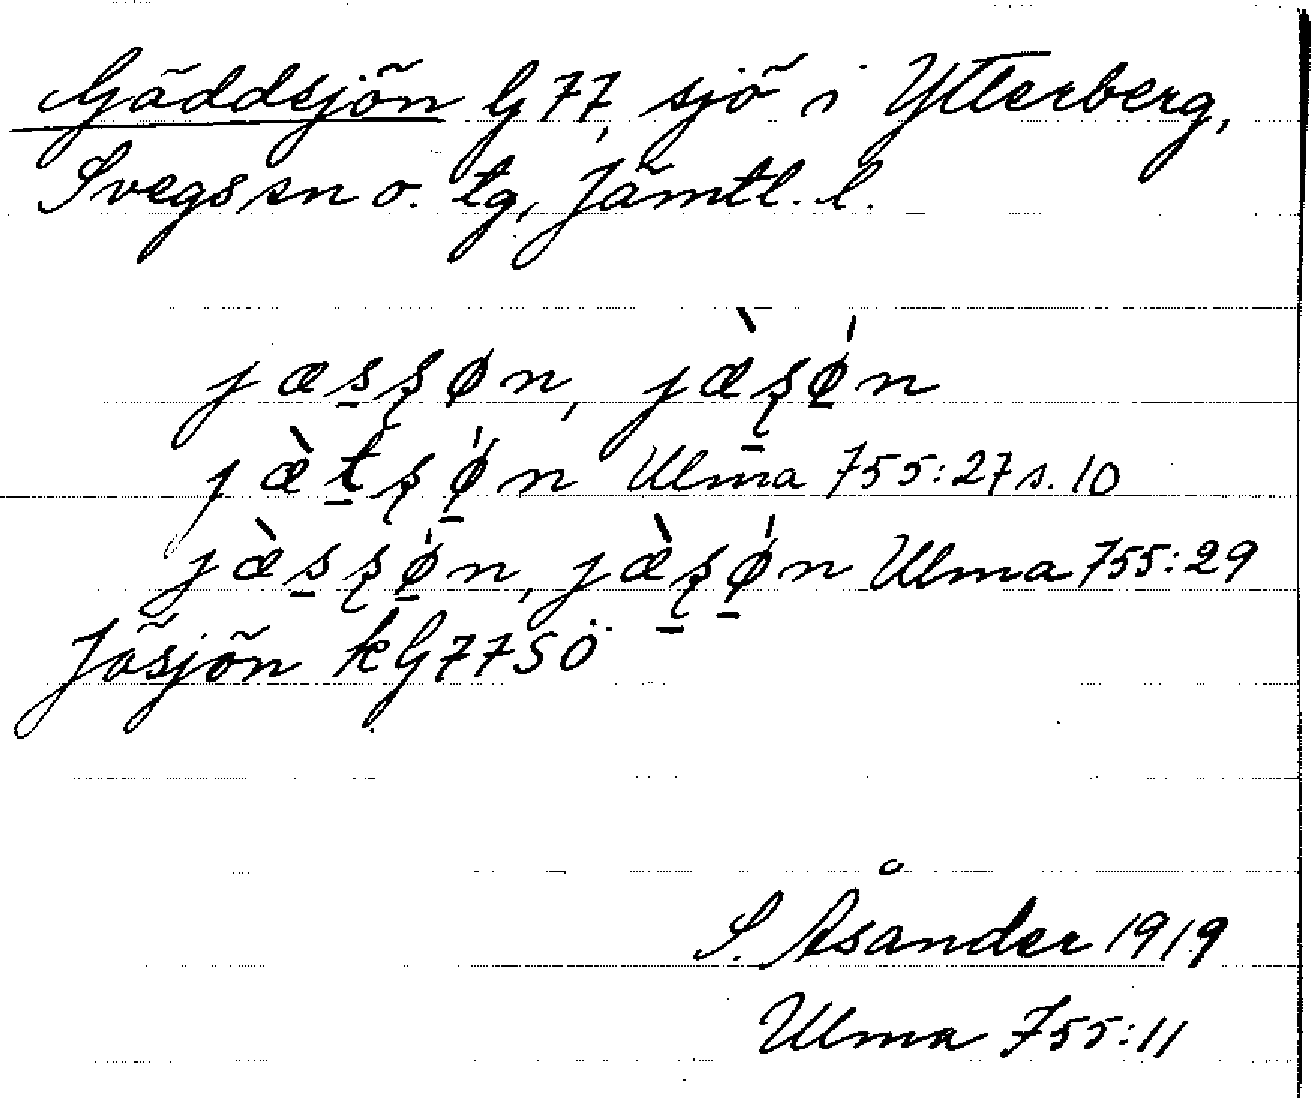 Gäddsjön G 77, sjö i Ytterberg,
Svegs sn o. tg, Jämtl. l.
jæs̠ʂøn, jæ̀ʂ̠ǿ̠n
jæ̀t̠ʂǿ̠n Ulma 755:27 s. 10
jæ̀s̠ʂǿ̠n, jæ̀ʂ̠ǿ̠n Ulma 755:29
Jäsjön kG77SÖ
S. Åsander 1919
Ulma 755:11